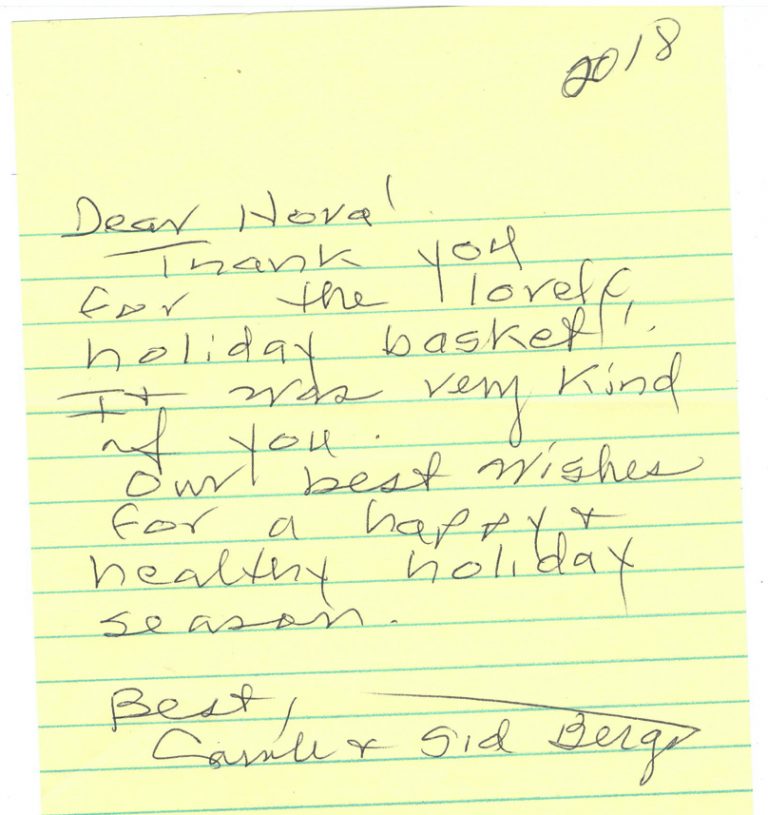 2018
Dear Nora!
Thank you
for the lovely
holiday basket!
It was very kind
of you.
Our best wishes
for a happy &
healthy holiday
season.
Best,
& Sid Berg